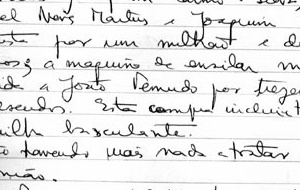 el Neves Martins e Joaquim
por um milhão e d
a maquina de ensilar m
a João Demudo por treze
escudos. Esta compra incluiu
ilha basculante.
havendo mais nada a tratar